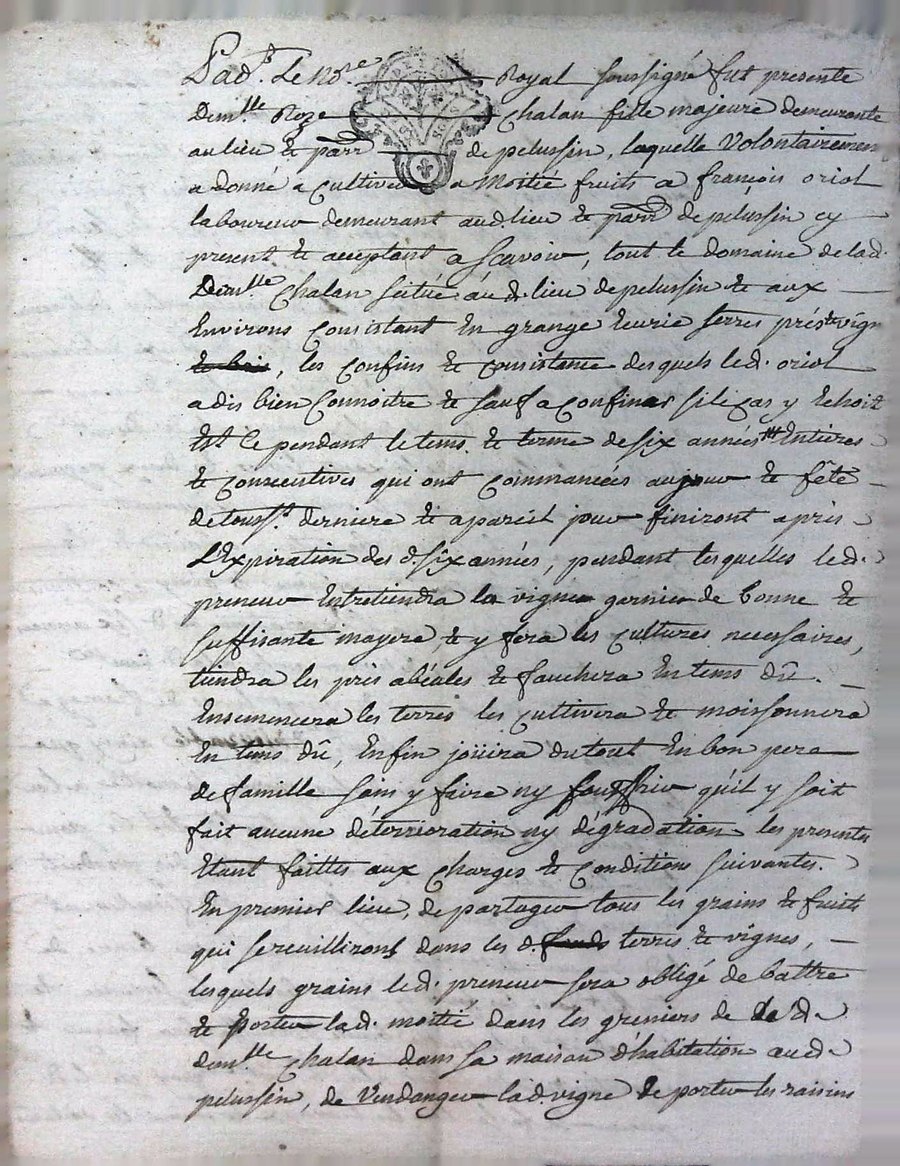 Pad.t Le No.re Royal soussigné fut presente
Dem.lle Roze Chalan fille majeure demeurante
au lieu et parr de pelussin, laquelle Volontairement
a donné a cultiver a Moitié fruits a françois oriol
laboureur demeurant aud. lieu et parr de pelussin cy
present et acceptant a scavoir, tout le domaine de lad.
Dem.lle Chalan scitué aud. lieu de pelussin et aux
Environs Consistant En grange Eurie terres prés et vign
les Confins et Consistance desquels led. oriol
a dis bien Connoitre et sauf a Confiner si le Cas y Echoit
Et Ce pendant le tems et terme de six années Entieres
et Consecutives qui ont Commancées au jour et fête
de touss.t derniere et a pareil jour finiront apres
L'Expiration des d. six années, pendant lesquelles led.
preneur Entretiendra la vigne garnie de bonne et
suffisante mayere, et y fera les cultures necessaires,
tiendra les prés abéalés et fauchera En tems dû.
Ensemencera les terres les cultivera et moissonnera
En tems dû, Enfin joüira du tout En bon pere
de famille sans y faire ny souffrir qu'il y soit
fait aucune déterrioration ny dégradation les presentes
Etant faittes aux Charges et Conditions suivantes.
En premier lieu, de partager tous les grains et fruits
qui se reuilliront dans les d. terres et vignes,
lesquels grains led. preneur sera obligé de battre
et porter lad. moitié dans les greniers de la d.
dem.lle Chalan dans sa maison d'habitation aud.
pelussin, de Vendanger lad vigne de porter les raisins